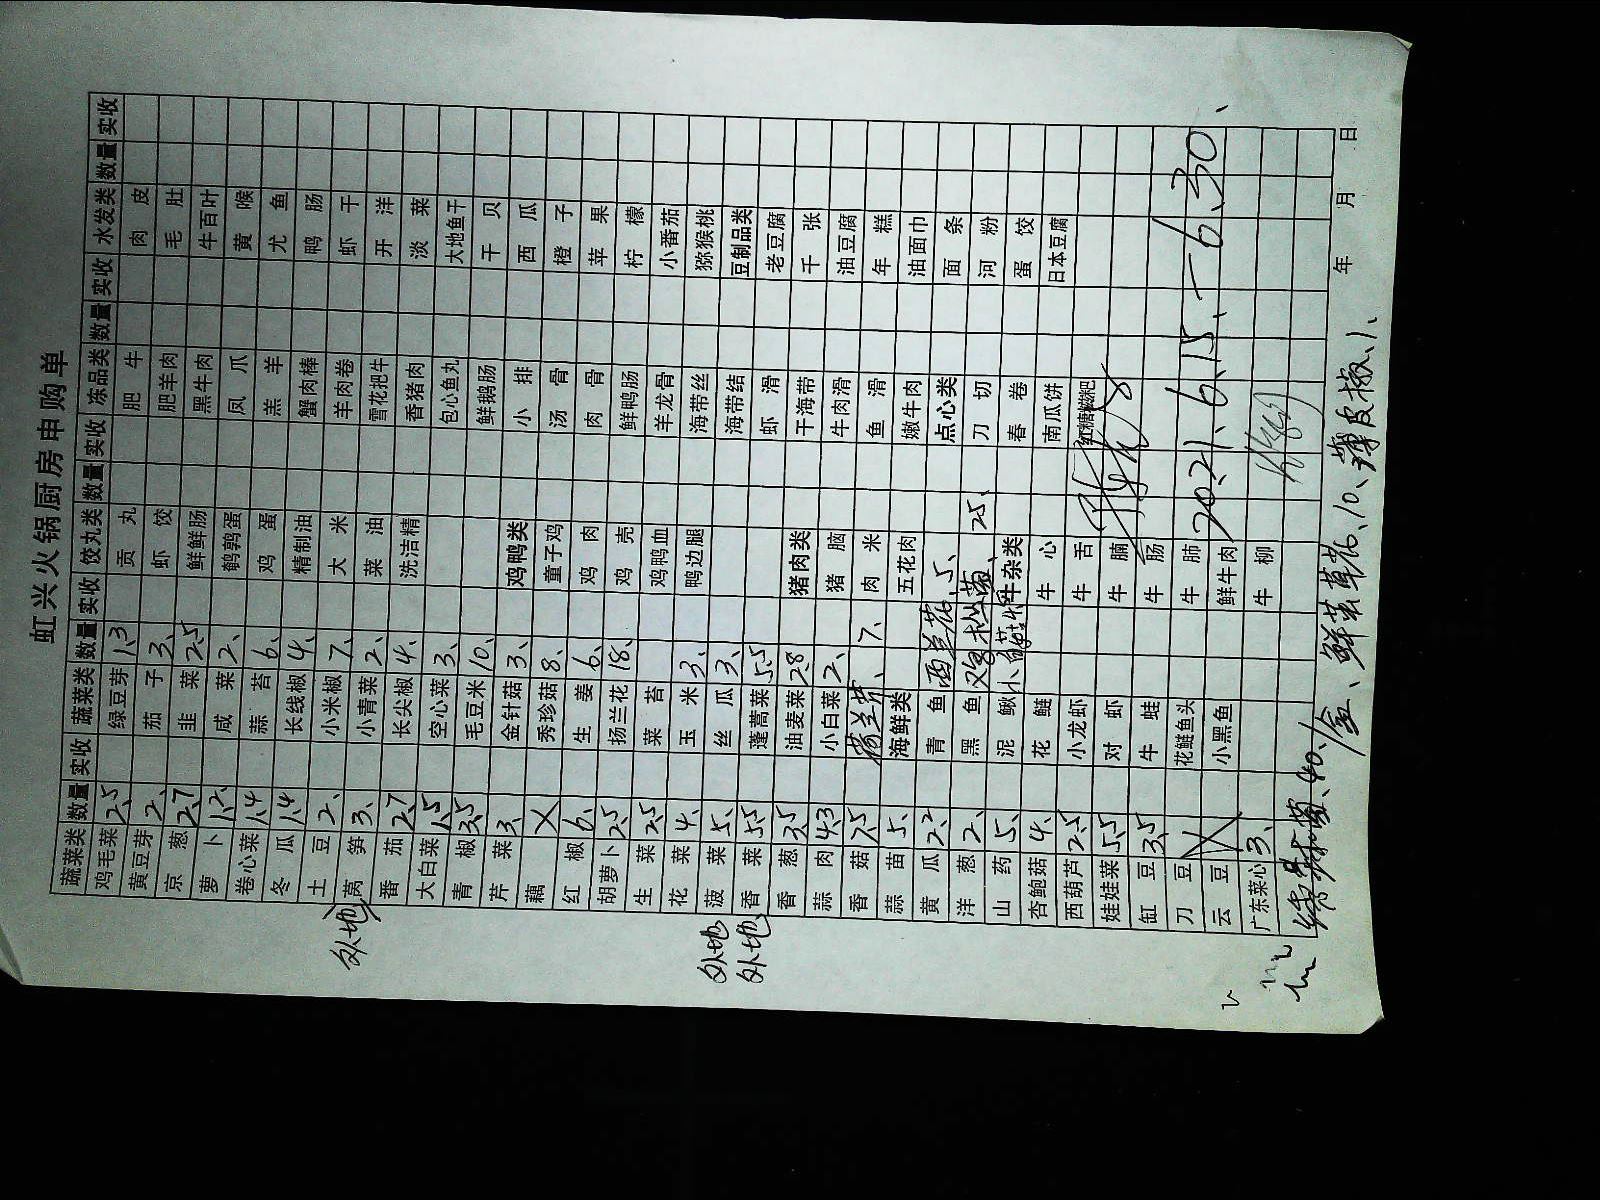 虹兴火锅厨房申购单
蔬菜类 数量 实收 蔬菜类 数量 实收 饺丸类 数量 实收 冻品类 数量 实收 水发类 数量 实收
鸡毛菜 2.5 绿豆芽 1.3 贡丸 肥牛 肉皮
黄豆芽 2、 茄子 3、 虾饺 肥羊肉 毛肚
京葱 2.7 韭菜 2.5 鲜鲜肠 黑牛肉 牛百叶
萝卜 1.2、 咸菜 2、 鹌鹑蛋 凤爪 黄喉
卷心菜 1.4 蒜苔 6、 鸡蛋 羔羊 尤鱼
冬瓜 1.4 长线椒 4、 精制油 蟹肉棒 鸭肠
土豆 2、 小米椒 7、 大米 羊肉卷 虾干
外地 莴笋 3、 小青菜 2、 菜油 雪花把牛 开洋
番茄 2.7 长尖椒 4、 洗洁精 香猪肉 淡菜
大白菜 1.5 空心菜 3、 包心鱼丸 大地鱼干
青椒 3.5 毛豆米 10、 鲜鹅肠 干贝
芹菜 3、 金针菇 3、 鸡鸭类 小排 西瓜
藕 X 秀珍菇 8、 童子鸡 汤骨 橙子
红椒 6、 生姜 6、 鸡肉 肉骨 苹果
胡萝卜 2.5 扬兰花 18、 鸡壳 鲜鸭肠 柠檬
生菜 2.5 菜苔 鸡鸭血 羊龙骨 小番茄
花菜 4、 玉米 3、 鸭边腿 海带丝 猕猴桃
外地 菠菜 5、 丝瓜 3、 海带结 豆制品类
外地 香菜 5.5 蓬蒿菜 5.5 虾滑 老豆腐
香葱 3.5 油麦菜 2.8 猪肉类 干海带 千张
蒜肉 4.3 小白菜 2、 猪脑 牛肉滑 油豆腐
香菇 7.5 7、 肉米 鱼滑 年糕
蒜苗 5、 海鲜类 五花肉 嫩牛肉 油面巾
黄瓜 2.2 青鱼 西兰花、5、 点心类 面条
洋葱 2、 黑鱼 鸡枞菌、25、 刀切 河粉
山药 5、 泥鳅 牛杂类 春卷 蛋饺
杏鲍菇 4、 花鲢 牛心 南瓜饼 日本豆腐
西葫芦 2.5 小龙虾 牛舌 红糖糍粑
娃娃菜 5.5 对虾 牛腩
缸豆 3.5、 牛蛙 牛肠
刀豆 花鲢鱼头 牛肺 2021、6、15、—6、30、
云豆 小黑鱼 鲜牛肉
广东菜心 3、 牛柳
40、1/盒、鲜茉草花、10、薄皮椒、1、
年 月 日